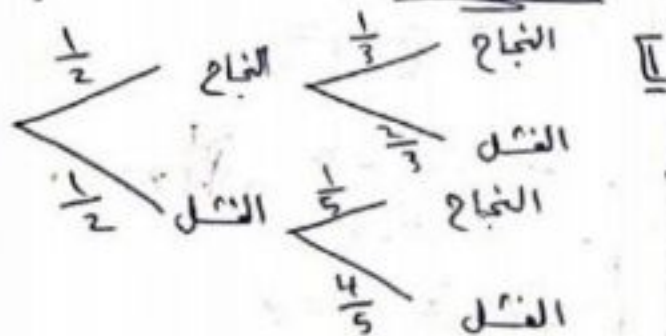 1
1/3 النجاح
1/2 النجاح
2/3 الفشل
1/2 الفشل
1/5 النجاح
4/5 الفشل